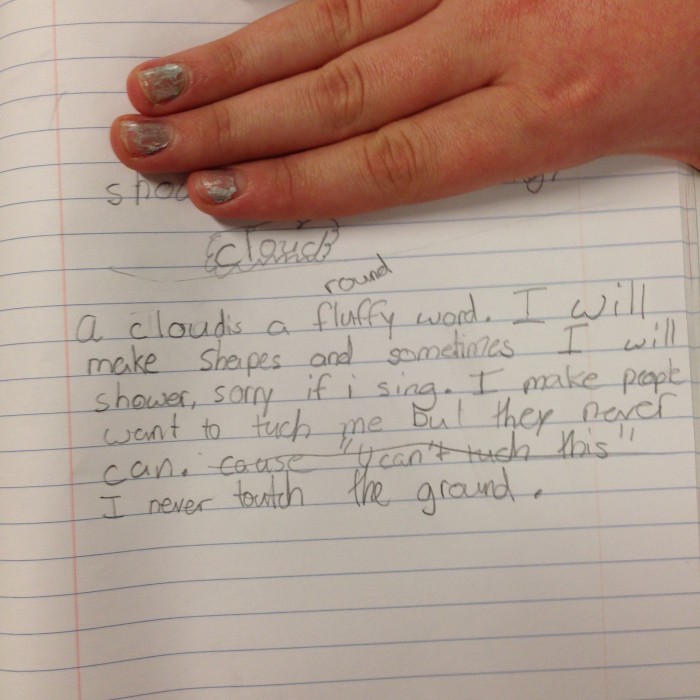 cloud
round
a cloudis a fluffy word. I will
make shapes and sometimes I will
shower, sorry if i sing. I make people
want to tuch me but they never
can. cause "ycan't tuch this"
I never toutch the ground.